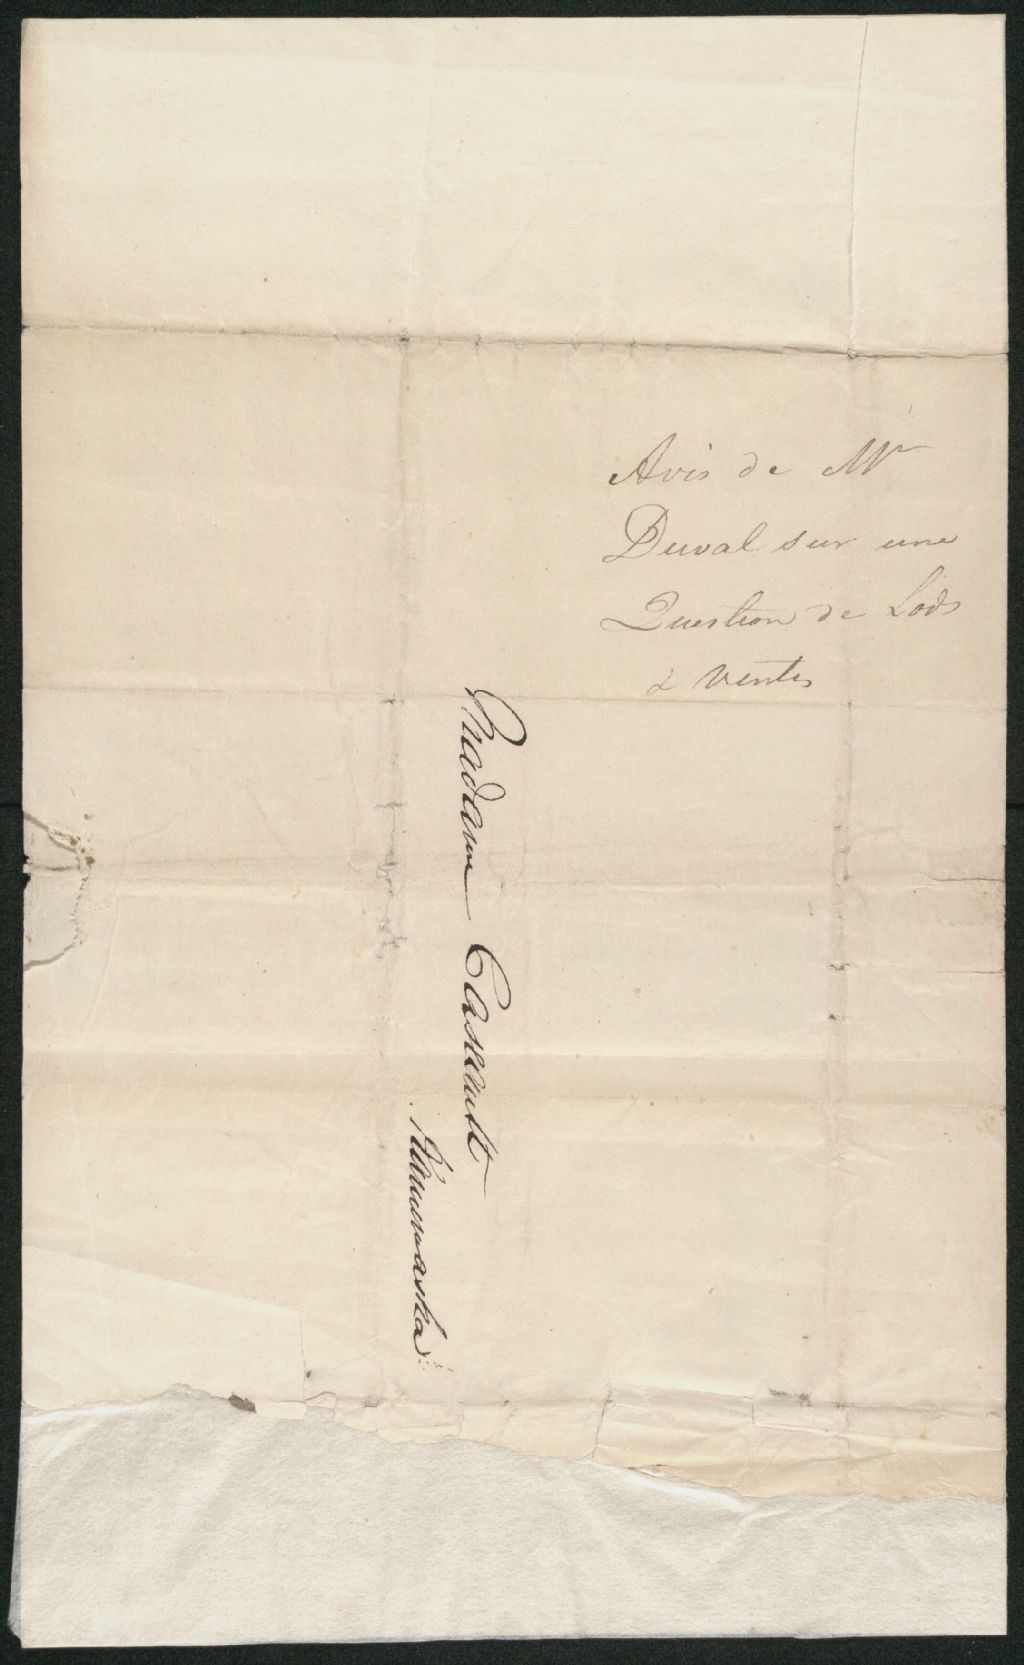 Avis de Mr
Duval sur une
Question de Lods
& ventes
Madam Casault
Kamouraska